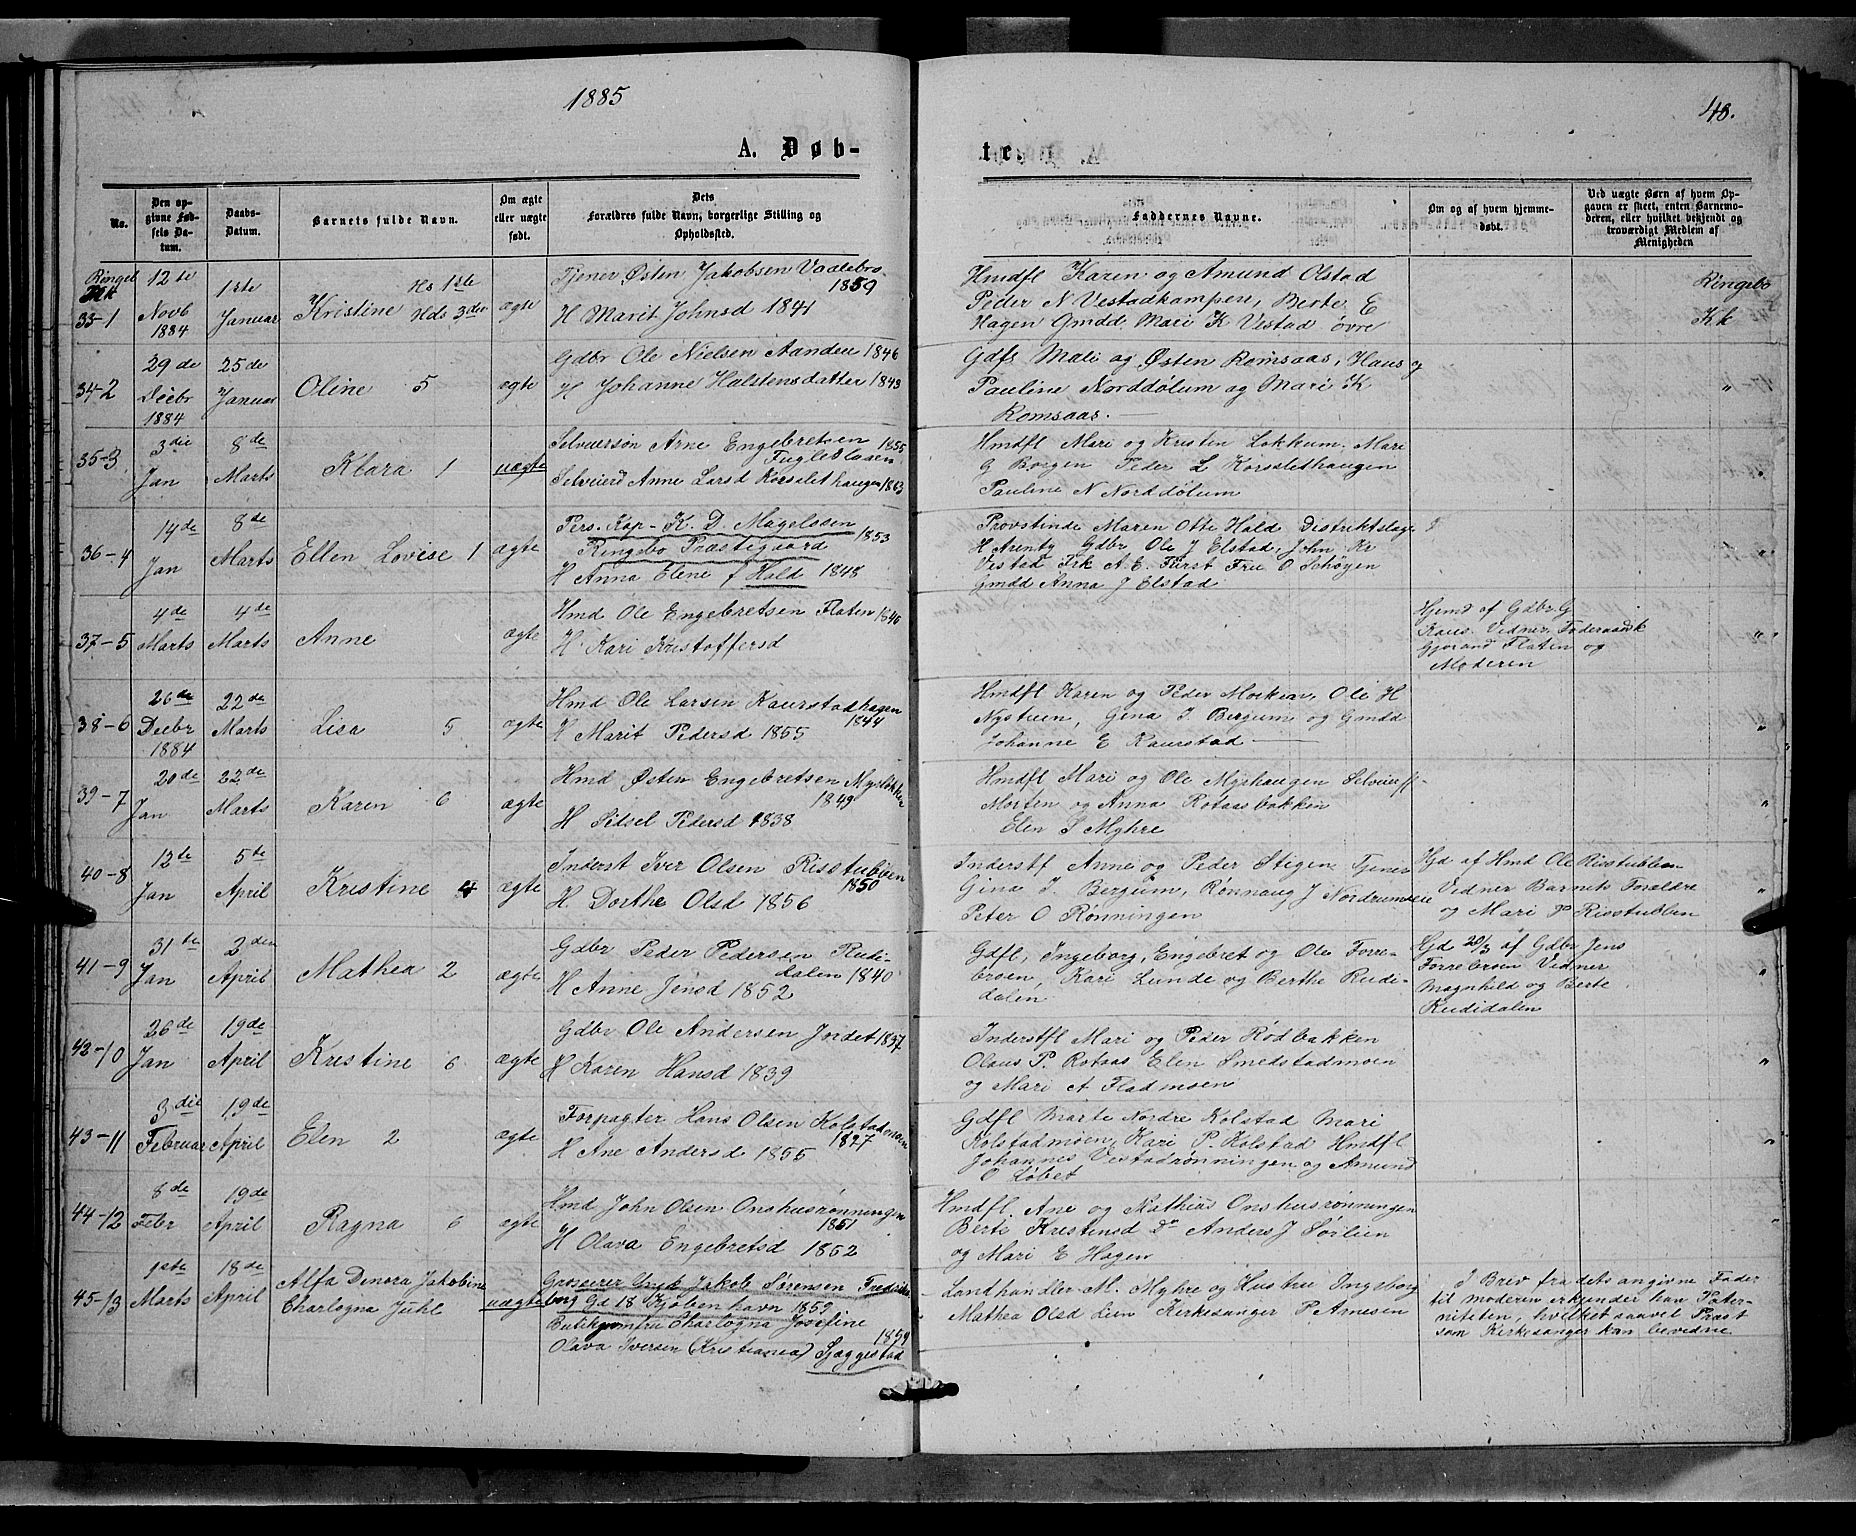 1885
48.
A. Døb-
te.
No.
Den op-
givne Fød-
sels Da-
tum.
Daabs-
Datum.
Barnets fulde Navn.
Om ægte
eller uægte
født.
Dets
Forældres fulde Navn, borgerlige Stilling og
Opholdssted.
Faddernes Navne.
Om og af hvem hjemme-
døbt.
Ved uægte Børn af hvem Op-
gaven er skeet, enten Barnemo-
deren, eller hvilket bekjendt og
troværdigt Medlem af
Menigheden
33-1
12te
Novb
1884
1ste
Januar
Kristine
Hs 1ste
Hds 3die
ægte
Tjener Østen Jakobsen Vaalebro
1859
H Marit Johnsd 1841
Hmdfl Karen og Amund Olstad
Peder N Vestadkampen, Berte E
Hagen Gmdd. Mari K Vestad øvre
Ringebo
Kk
34-2
29de
Decbr
1884
25de
Januar
Oline 5
ægte
Gdbr Ole Nielsen Aanden 1846
H Johanne Halstensdatter 1843
Gdfs Mali og Østen Romsaas, Hans og
Pauline Norddølum og Mari K
Romsaas. —
"
35-3
3die
Jan
8de
Marts
Klara 1
uægte
Selveiersøn Arne Engebretsen 1855
Fugleslaaen
Selveierd Anne Larsd Korsslethaugen 1863
Hmdfl Mari og Kristen Lokkum. Mari
G Borgen Peder L Korsslethaugen
Pauline N Norddølum
"
36-4
14de
Jan
8de
Marts
Ellen Lovise 1
ægte
Pers. Kap- K. D. Magelssen
1853
Ringebo Præstegaard
H Anna Elene f Hald 1848
Provstinde Maren Otte Hald Distriktslæge
H Arentz Gdbr Ole J Elstad, John Kr
Vestad Frk A. E. Fürst Fru O Schøyen
Gmdd Anna J Elstad
"
37-5
4de
Marts
4de
Marts
Anne
ægte
Hmd Ole Engebretsen Flaten 1840
H Kari Kristoffersd
Hjemd af Gdbr G
Kaus. Vidner, Føderaadsk
Gjorand Flaten og
Moderen
"
38-6
26de
Decbr
1884
22de
Marts
Lisa 5
ægte
Hmd Ole Larsen Kaurstadhagen
1844
H Marit Pedersd 1855
Hmdfl Karen og Peder Moskiar, Ole H
Nystuen, Gina I. Bergum og Gmdd
Johanne E Kaurstad —
"
39-7
20de
Jan
22de
Marts
Karen 6
ægte
Hmd Østen Engebretsen Myrløkken
1849
H Sidsel Pedersd 1838
Hmdfl Mari og Ole Myrhaugen Selveierfl-
Morten og Anna Rotaasbakken
Elen S Myhre
"
40-8
12te
Jan
5te
April
Kristine 4
ægte
Inderst Iver Olsen Risstubben
1850
H Dorthe Olsd 1856
Inderstf Anne og Peder Stigen Tjener
Gina I. Bergum, Rønnaug J Nordrumseie
Peter O Rønningen
Hjd af Hmd Ole Risstubben
Vidner Barnets Forældre
og Mari P Risstubben
"
41-9
31te
Jan
2den
April
Mathea 2
ægte
Gdbr Peder Pedersen Rudi-
dalen 1840
H Anne Jensd 1852
Gdfl, Ingeborg, Engebret og Ole Forre-
broen, Kari Lunde og Berthe Rudi-
dalen
Hjd 20/3 af Gdbr Jens
Forrebroen Vidner
Magnhild og Berte
Rudidalen
"
42-10
26de
Jan
19de
April
Kristine 6
ægte
Gdbr Ole Andersen Jndet 1837
H Karen Hansd 1839
Inderstfl Mari og Peder Rødbakken
Olaus P. Rotaas Elen Smedstadmoen
og Mari A Fladmoen
"
43-11
3die
Februar
19de
April
Elen 2
ægte
Forpagter Hans Olsen Kolstadmoen
1827
H Ane Andersd 1855
Gdfl Marte Nordre Kolstad Mari
Kolstadmoen, Kari P. Kolstad Hmdfl
Johannes Vestadrønningen og Amund
O Løbet
"
44-12
8de
Febr
19de
April
Ragna 6
ægte
Hmd John Olsen Onshusrønningen
1851
H Olava Engebretsd 1852
Hmdfl. Ane og Mathias Onshusrønningen
Berte Kristensd Do Anders J Sørlien
og Mari E Hagen
"
45-13
1ste
Marts
18de
April
Alfa Dinora Jakobine
Charlogna Juhl
uægte
Grosserer Jakob Sørensen Fredriks
borg Gd 18 Kjøbenhavn 1859
Butikjomfru Charlogna Josefine
1859
Olava Iversen (Kristiania) Sjæggestad
Landhandler M. Myhre og Hustru Ingeborg
Mathea Olsd Lien Kirkesanger P Amesen
I Brev fra dets angivne Fader
til moderen erkjender han Pater-
niteten, hvilket saavel Præst
som Kirkesanger kan bevidne